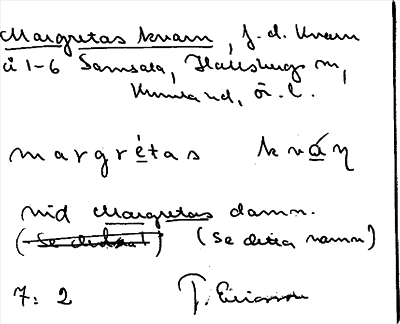 Margretas kvarn, f.d. kvarn
å 1-6 Samsala, Hallsbergs m,
Kumla hd, ör. l.
margrétas kváṇ
vid Margretas damm.
(Se detta namn)
7: 2 T. Ericsson